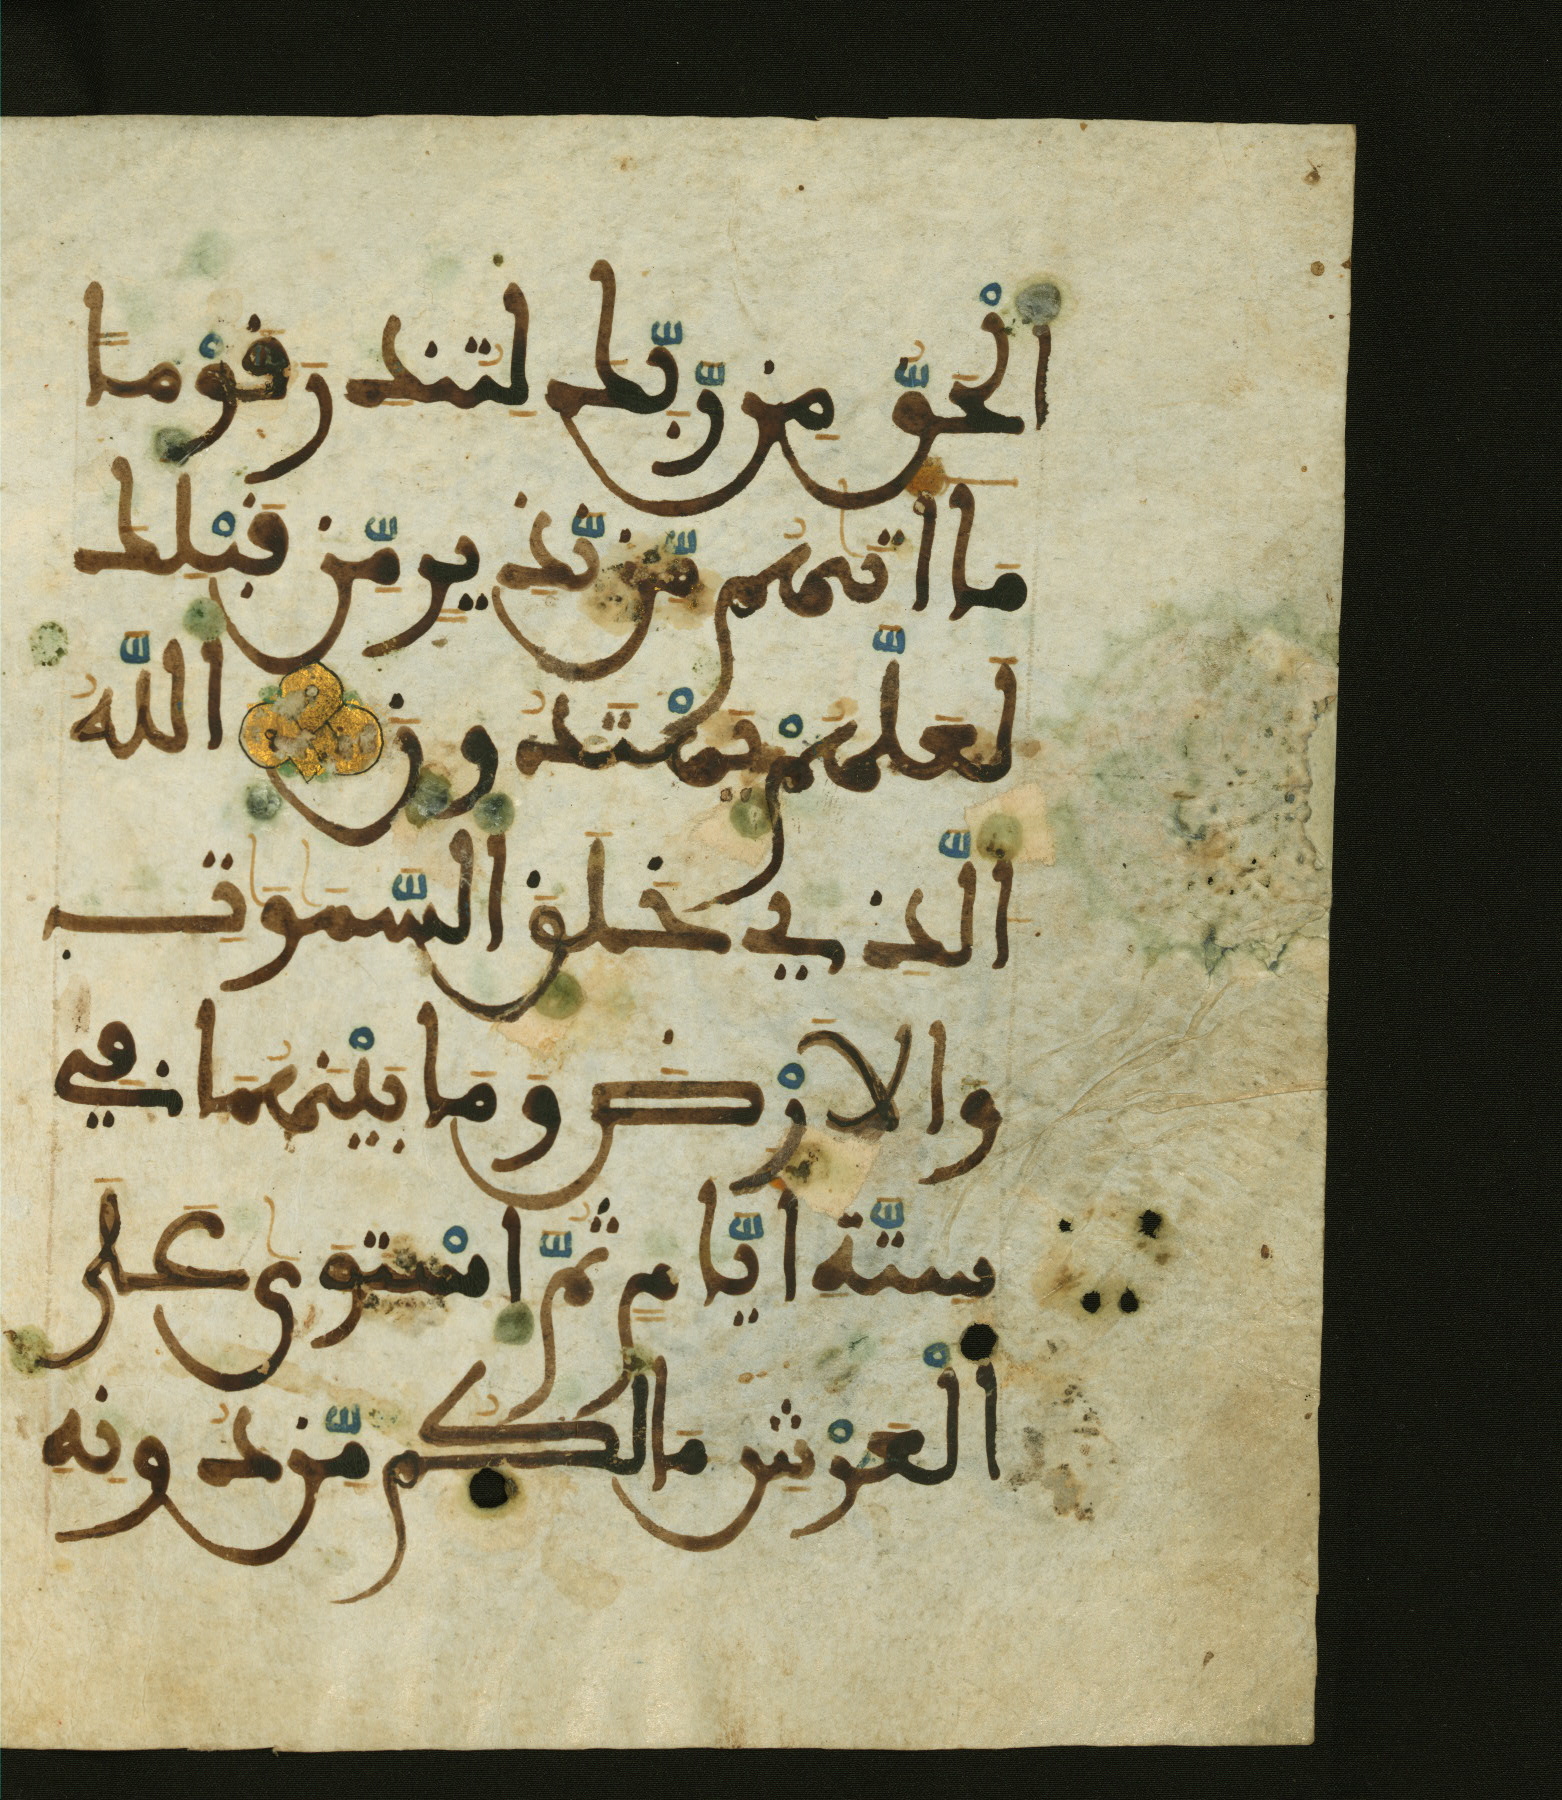 الْحَقُّ مِن رَّبِّكَ لِتُنذِرَ قَوْمًا
مَّا أَتَىٰهُم مِّن نَّذِيرٍ مِّن قَبْلِكَ
لَعَلَّهُمْ يَهْتَدُونَ اللَّهُ
الَّذِي خَلَقَ السَّمَٰوَٰتِ
وَالْأَرْضَ وَمَا بَيْنَهُمَا فِي
سِتَّةِ أَيَّامٍ ثُمَّ اسْتَوَىٰ عَلَى
الْعَرْشِ مَا لَكُم مِّن دُونِهِ